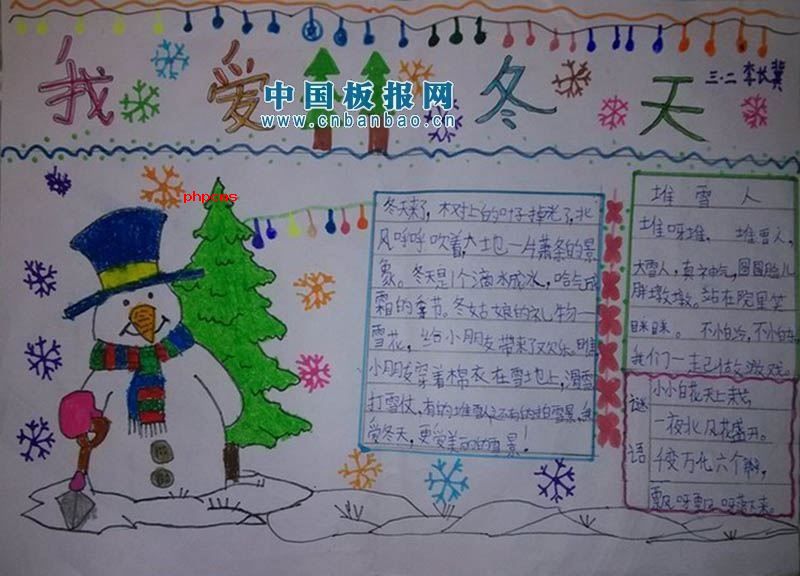 我爱冬天
三.二 李长冀
中国板报网
www.cnbanbao.cn
phpcms
冬天来了，树上的叶子掉光了，北
风呼呼吹着，大地一片萧条的景
象。冬天是个滴水成冰，哈气成
霜的季节。冬姑娘的礼物一
雪花，给小朋友带来了欢乐。瞧
小朋友穿着棉衣在雪地上，滑雪
打雪仗，有的堆雪人还有的拍雪景，我
爱冬天，更爱美丽的雪景！
堆雪人
堆呀堆，堆雪人，
大雪人，真神气，圆圆脸儿
胖墩墩。站在院里笑
眯眯。不怕冷，不怕冻，
我们一起做游戏。
谜语
小小白花天上栽，
一夜北风花盛开。
千变万化六个瓣，
飘呀飘呀落下来。